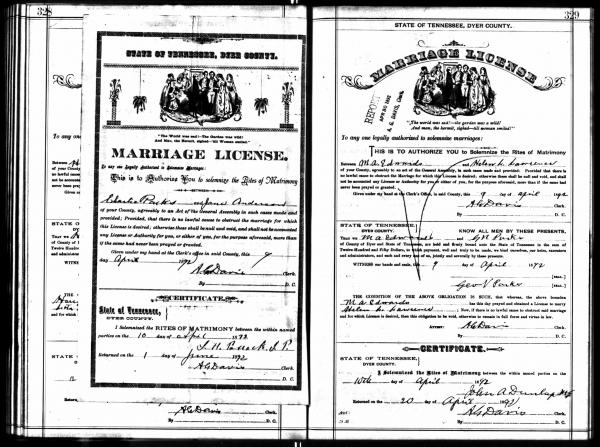 328
To any one
Between
STATE OF
TWENTY
WITNESS
STATE OF
A G Davis Clerk.
By D. C.
STATE OF TENNESSEE, DYER COUNTY.
"The World was sad!—The Garden was wild!
And Man, the Hermit, sighed—till Woman smiled!"
MARRIAGE LICENSE.
To any one Legally Authorized to Solemnize Marriages:
This is to Authorize You to solemnize the Rites of Matrimony
BETWEEN
Charlie Parks Jane Anderson
of your County, agreeably to an Act of the General Assembly in such cases made and
provided; Provided, that there is no lawful cause to obstruct the marriage for which
this License is desired; otherwise these shall be null and void, and shall not be accounted
any License or Authority for you, or either of you, for the purpose aforesaid, more than
if the same had never been prayed or granted.
Given under my hand at the Clerk's office in said County, this 9
day April 1892
A G Davis Clerk.
D. C.
CERTIFICATE.
State of Tennessee,
DYER COUNTY.
I Solemnized the RITES OF MATRIMONY between the within named
parties on the 10 day of April 1892
J. P.
Returned on the 1 day of June 1892
A G Davis Clerk.
D. C.
329
STATE OF TENNESSEE, DYER COUNTY.
MARRIAGE LICENSE
REPORT
APR 30 1892
A. G. DAVIS, Clerk.
"The world was sad!—the garden was a wild!
And man, the hermit, sighed—till woman smiled!"
To any one legally authorized to solemnize marriages:
THIS IS TO AUTHORIZE YOU to Solemnize the Rites of Matrimony
Between M. A. Edwards and Helen L. Lawrence
of your County, agreeably to an act of the General Assembly, in such cases made and provided: Provided that there is
no lawful cause to obstruct the marriage for which this License is desired; otherwise these shall be null and void, and
shall not be accounted any License or Authority for you or either of you, for the purpose aforesaid, more than if the same had
never been prayed or granted.
Given under my hand at the Clerk's Office, in said County, this 9 day of April 1892
A G Davis Clerk.
By D. C.
STATE OF TENNESSEE,
DYER COUNTY.
KNOW ALL MEN BY THESE PRESENTS:
That we M. A. Edwards G V Parks
of County of Dyer and State of Tennessee, are held and firmly bound unto the State of Tennessee in the sum of
Twelve Hundred and Fifty Dollars, to which payment, well and truly to be made, we bind ourselves, our heirs, executors
and administrators, and each and every one of us, jointly and severally by these presents.
WITNESS our hands and seals, 9 day of April 1892
[SEAL.]
Geo V Parks [SEAL.]
THE CONDITION OF THE ABOVE OBLIGATION IS SUCH, that whereas, the above bounden
M A Edwards has this day prayed and obtained a License to marry
Helen L Lawrence Now, if there is no lawful cause to obstruct said marriage
and for which License is desired, then this obligation to be void, otherwise to remain in full force and virtue in law.
ATTEST: A G Davis Clerk.
By D. C.
CERTIFICATE.
STATE OF TENNESSEE,
DYER COUNTY.
I Solemnized the Rites of Matrimony between the within named parties on the
10th day of April 1892
John A Dunlap
Returned on the 20 day of April 1892
A G Davis Clerk.
By D. C.